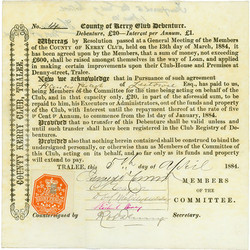 County of Kerry Club Debenture.
Debenture, £20—Interest per Annum, £1.
Whereas by Resolution passed at a General Meeting of the Members
of the COUNTY OF KERRY CLUB, held on the 13th day of March, 1884, it
has been agreed upon by the Members, that a sum of money, not exceeding
£600, shall be raised amongst themselves in the way of Loan, and applied
in making certain improvements upon their Club-House and Premises at
Denny-street, Tralee.
Now we acknowledge that in Pursuance of such agreement
Esq., has paid to us,
being Members of the Committee for the time being acting on behalf of the
Club, and in that capacity only, £20, in part of the aforesaid sum, to be
repaid to him, or his Executors, out of the funds and property
of the Club, with Interest until the repayment thereof at the rate of FIVE
per Cent ℔ Annum, to commence from the 1st day of January, 1884.
Provided that this debenture shall not be transferable until
such transfer shall have been registered in the Club Registry of De-
bentures.
Provided also that nothing herein contained shall be construed to bind the
undersigned personally, or otherwise than as Members of this Committee
acting on its behalf, and so far only as its funds and property will
extend to pay.
TRALEE, 5th day of April 1884.
MEMBERS
OF THE
COMMITTEE.
Countersigned by
Secretary.
COUNTY KERRY CLUB, TRALEE.